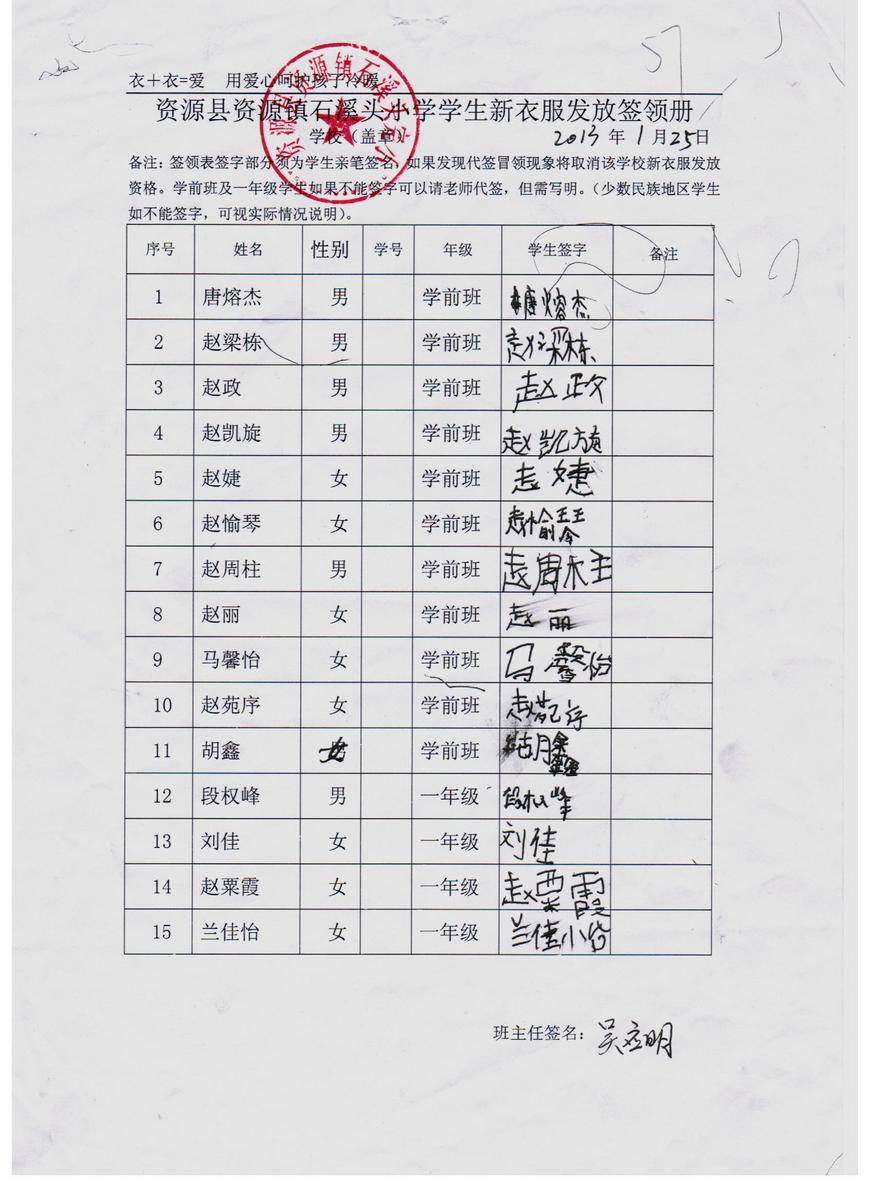 衣＋衣=爱 用爱心呵护孩子冷暖
资源县资源镇石溪头小学学生新衣服发放签领册
学校（盖章） 2013 年 1 月 25 日
备注：签领表签字部分须为学生亲笔签名，如果发现代签冒领现象将取消该学校新衣服发放
资格。学前班及一年级学生如果不能签字可以请老师代签，但需写明。（少数民族地区学生
如不能签字，可视实际情况说明）。
序号 姓名 性别 学号 年级 学生签字 备注
1 唐熔杰 男 学前班 唐熔杰
2 赵梁栋 男 学前班 赵梁栋
3 赵政 男 学前班 赵政
4 赵凯旋 男 学前班 赵凯旋
5 赵婕 女 学前班 赵婕
6 赵愉琴 女 学前班 赵愉琴
7 赵周柱 男 学前班 赵周柱
8 赵丽 女 学前班 赵丽
9 马馨怡 女 学前班 马馨怡
10 赵苑序 女 学前班 赵苑序
11 胡鑫 女 学前班 胡鑫
12 段权峰 男 一年级 段权峰
13 刘佳 女 一年级 刘佳
14 赵粟霞 女 一年级 赵粟霞
15 兰佳怡 女 一年级 兰佳怡
班主任签名：吴应明